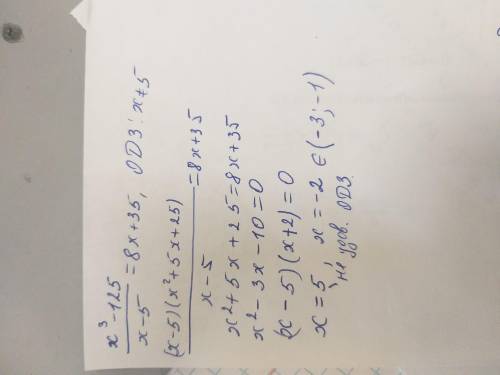 x³-125 / x-5 = 8x+35, ОДЗ: x≠5
(x-5)(x²+5x+25) / x-5 = 8x+35
x²+5x+25=8x+35
x²-3x-10=0
(x-5)(x+2)=0
x=5 x=-2 ∈(-3;-1)
не удов. ОДЗ.